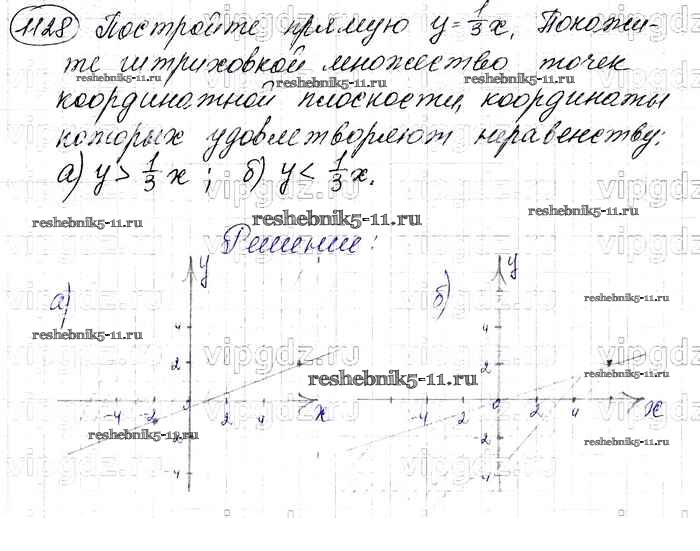 1128 Постройте прямую y = 1/3 x. Покажи-
те штриховкой множество точек
reshebnik5-11.ru reshebnik5-11.ru
координатной плоскости, координаты
которых удовлетворяют неравенству:
а) y > 1/3 x ; б) y < 1/3 x.
vipgdz.ru vipgdz.ru vipgdz.ru
reshebnik5-11.ru reshebnik5-11.ru reshebnik5-11.ru
Решение:
vipgdz.ru vipgdz.ru vipgdz.ru
а) y б) y
reshebnik5-11.ru
4 4
reshebnik5-11.ru reshebnik5-11.ru
vipgdz.ru vipgdz.ru vipgdz.ru
2 2
reshebnik5-11.ru
-4 -2 0 2 4 x -4 -2 0 2 4 x
reshebnik5-11.ru reshebnik5-11.ru
-2 -2
vipgdz.ru vipgdz.ru vipgdz.ru
-4 -4